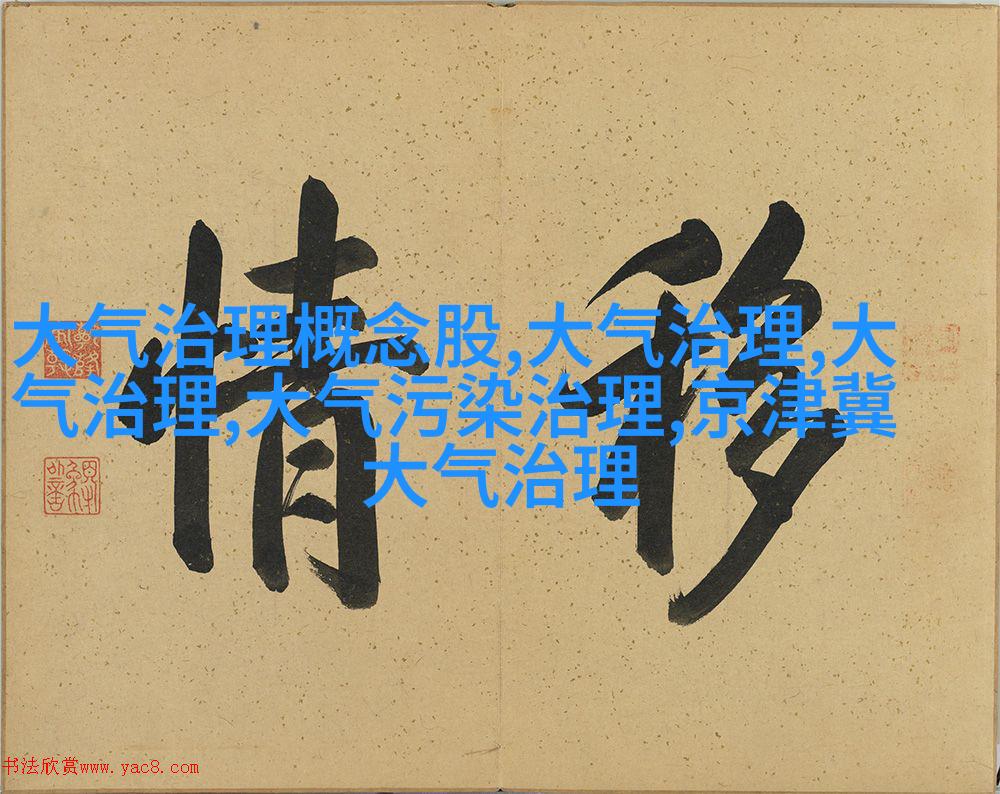 移情
大气治理概念股,大气治理,大
气治理,大气污染治理,京津冀
大气治理
书法欣赏www.yac8.com